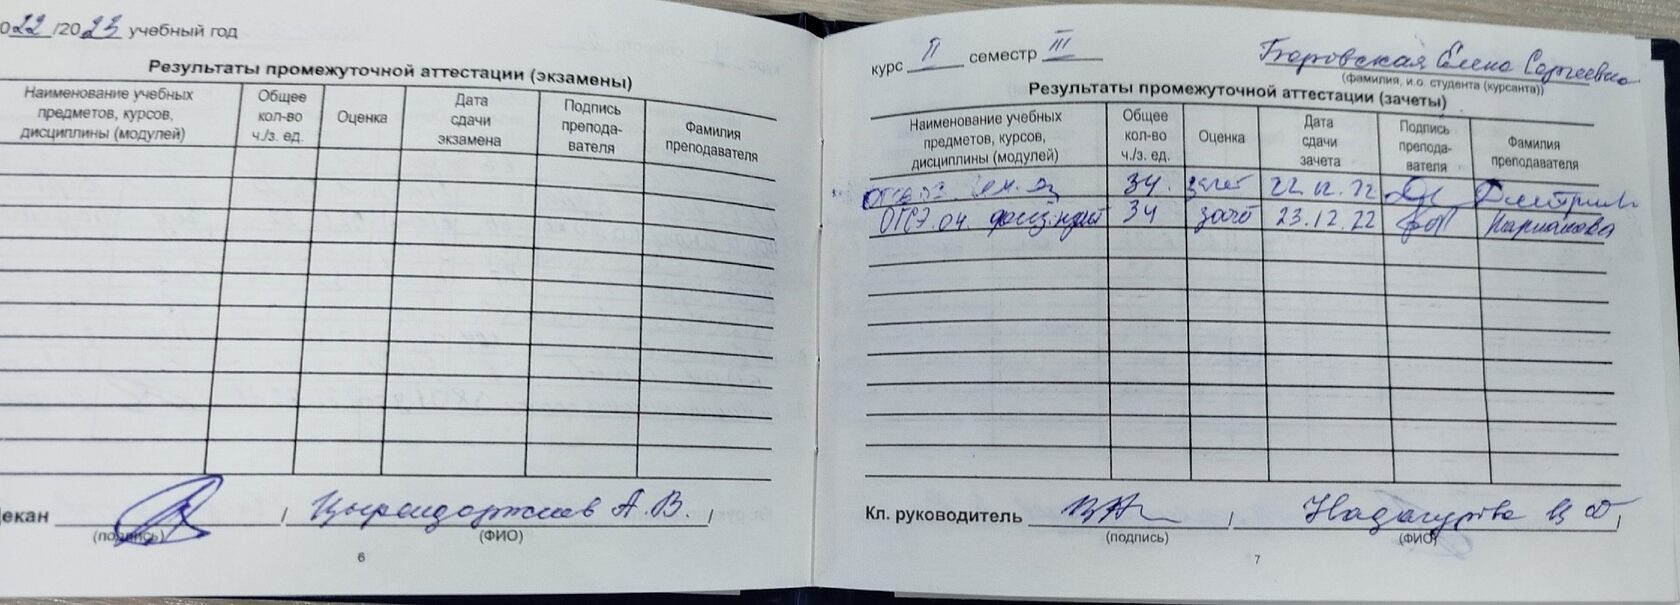 2022/2023 учебный год
Результаты промежуточной аттестации (экзамены)
Наименование учебных предметов, курсов, дисциплины (модулей) Общее кол-во ч./з. ед. Оценка Дата сдачи экзамена Подпись препода-вателя Фамилия преподавателя
Декан Цырендоржиев А.В.
(подпись) (ФИО)
6
курс II семестр III Боровская Елена Сергеевна
(фамилия, и.о. студента (курсанта))
Результаты промежуточной аттестации (зачеты)
Наименование учебных предметов, курсов, дисциплины (модулей) Общее кол-во ч./з. ед. Оценка Дата сдачи зачета Подпись препода-вателя Фамилия преподавателя
ОГСЭ.03. 34. зачет 22.12.22
ОГСЭ.04. 34 зачёт 23.12.22
Кл. руководитель
(подпись) (ФИО)
7